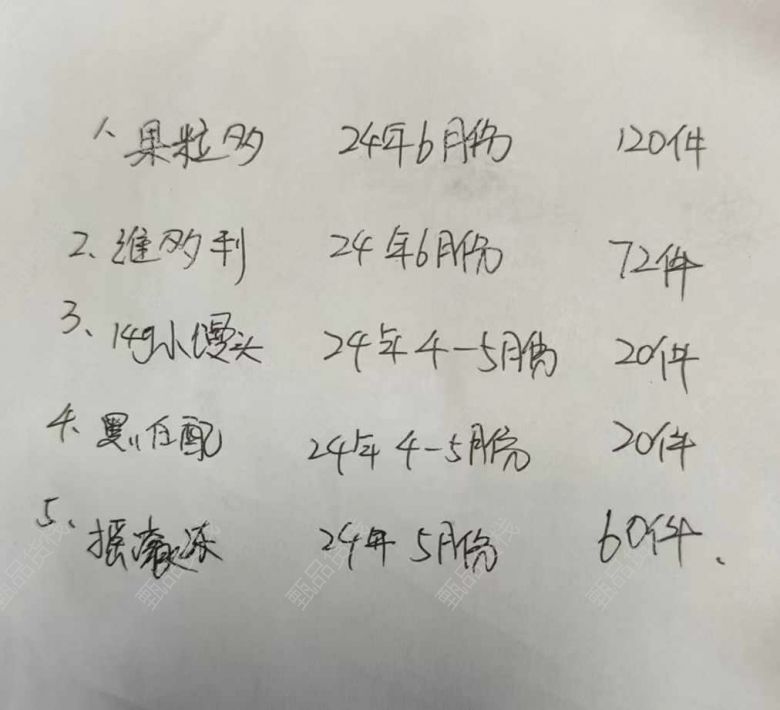 1、果粒多 24年6月份 120件
2、维多利 24年6月份 72件
3、14g小馒头 24年4-5月份 20件
4、黑任配 24年4-5月份 20件
5、摇滚冻 24年5月份 60件、
甄品货栈